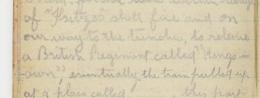 of "Fritz's" shell fire and on
our way to the trenches, to relieve
a British Regiment called "Kings
Own", eventually the train pulled up
at a place called this part